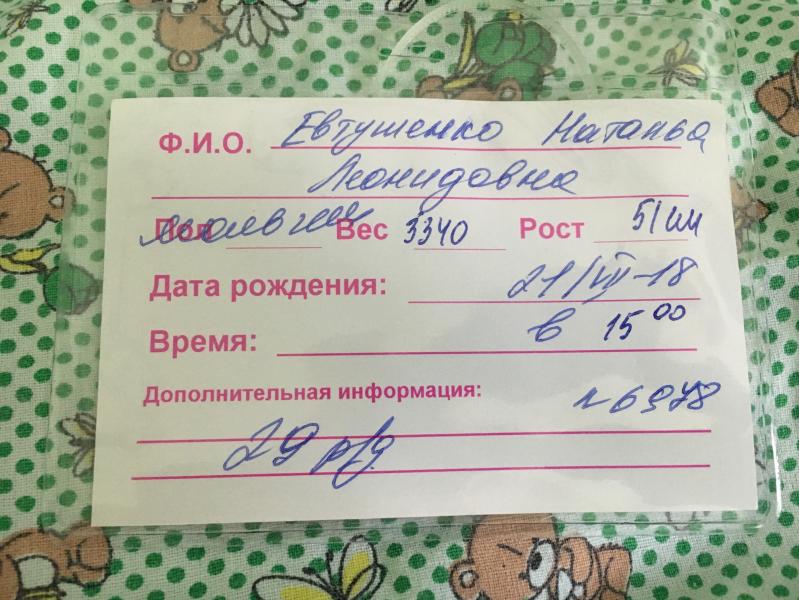 Ф.И.О. Евтушенко Наталья
Леонидовна
Пол мальчик Вес 3340 Рост 51 см
Дата рождения: 21/VIII-18
Время: в 15 00
Дополнительная информация:
29 р/д